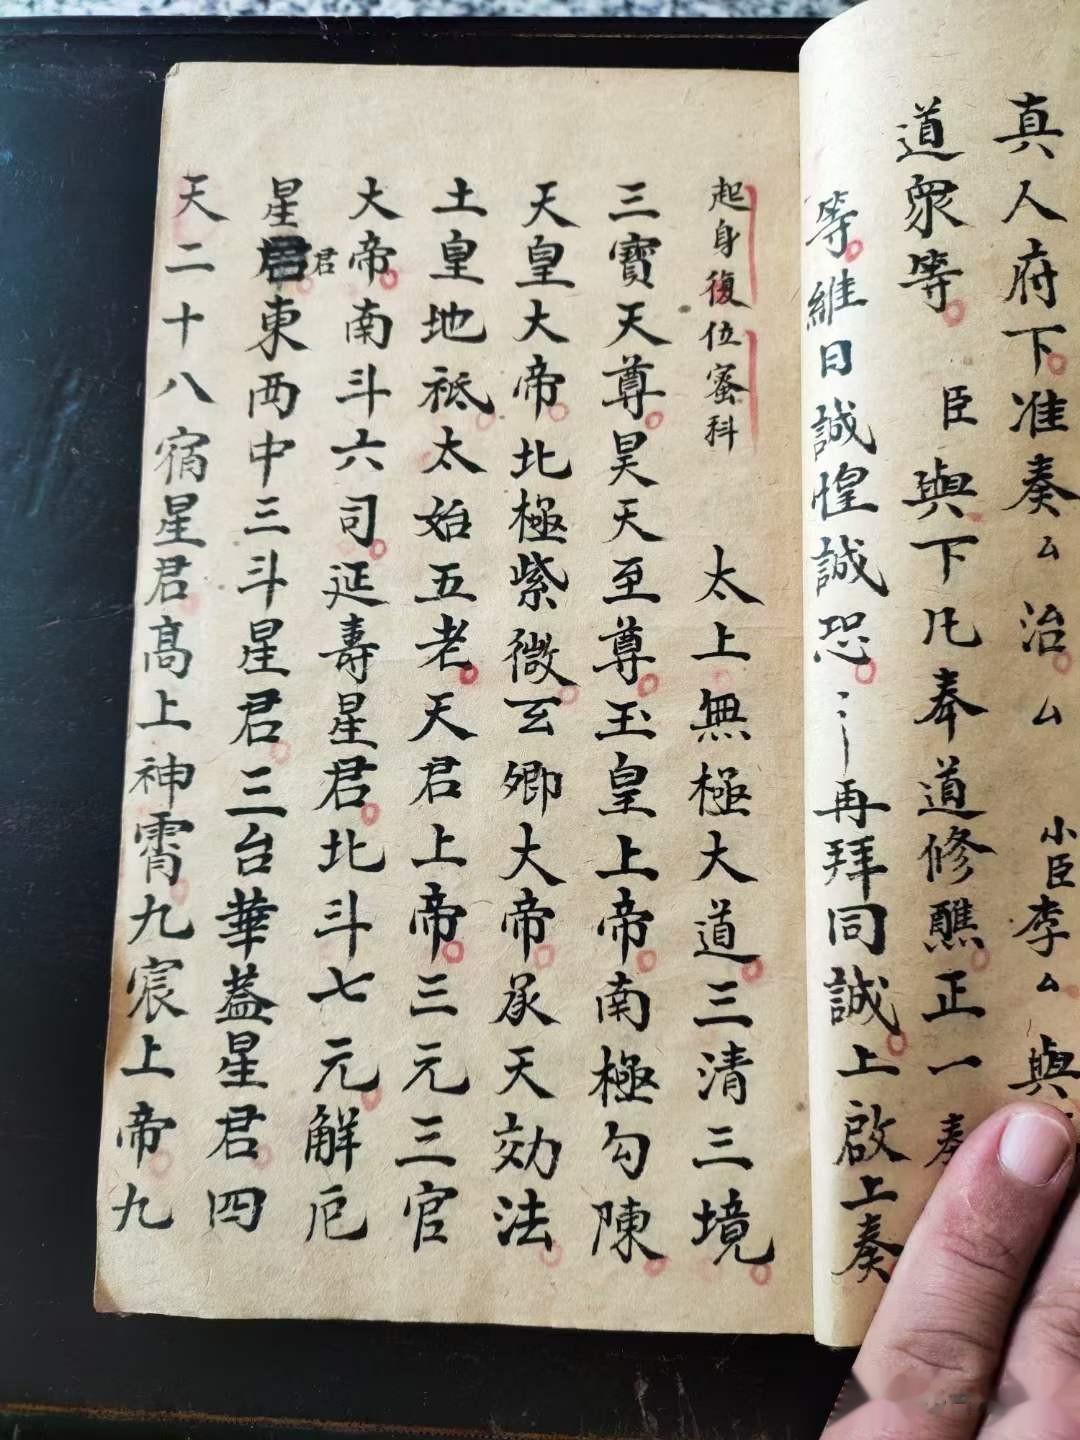 真人府下准奏厶治厶小臣李厶與
道衆等臣與下凡奉道修醮正一奏
等維日誠惶誠恐〻〻再拜同誠上啟上奏
起身復位蜜科太上無極大道三清三境
三寶天尊昊天至尊玉皇上帝南極勾陳
天皇大帝北極紫微玄卿大帝承天効法
土皇地祇太始五老天君上帝三元三官
大帝南斗六司延壽星君北斗七元解厄
星君東西中三斗星君三台華蓋星君四
天二十八宿星君高上神霄九宸上帝九